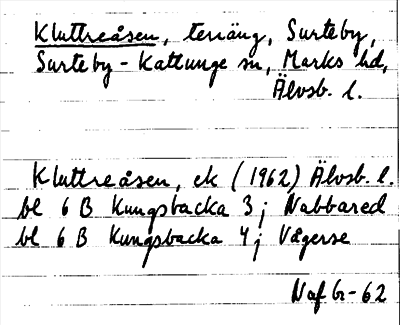 Kluttreåsen, terräng, Surteby,
Surteby-Kattunge sn, Marks hd,
Älvsb. l.
Kluttreåsen, ek (1962) Älvsb. l.
bl 6 B Kungsbacka 3; Nabbared
bl 6 B Kungsbacka 4; Vägerse
Naf G-62